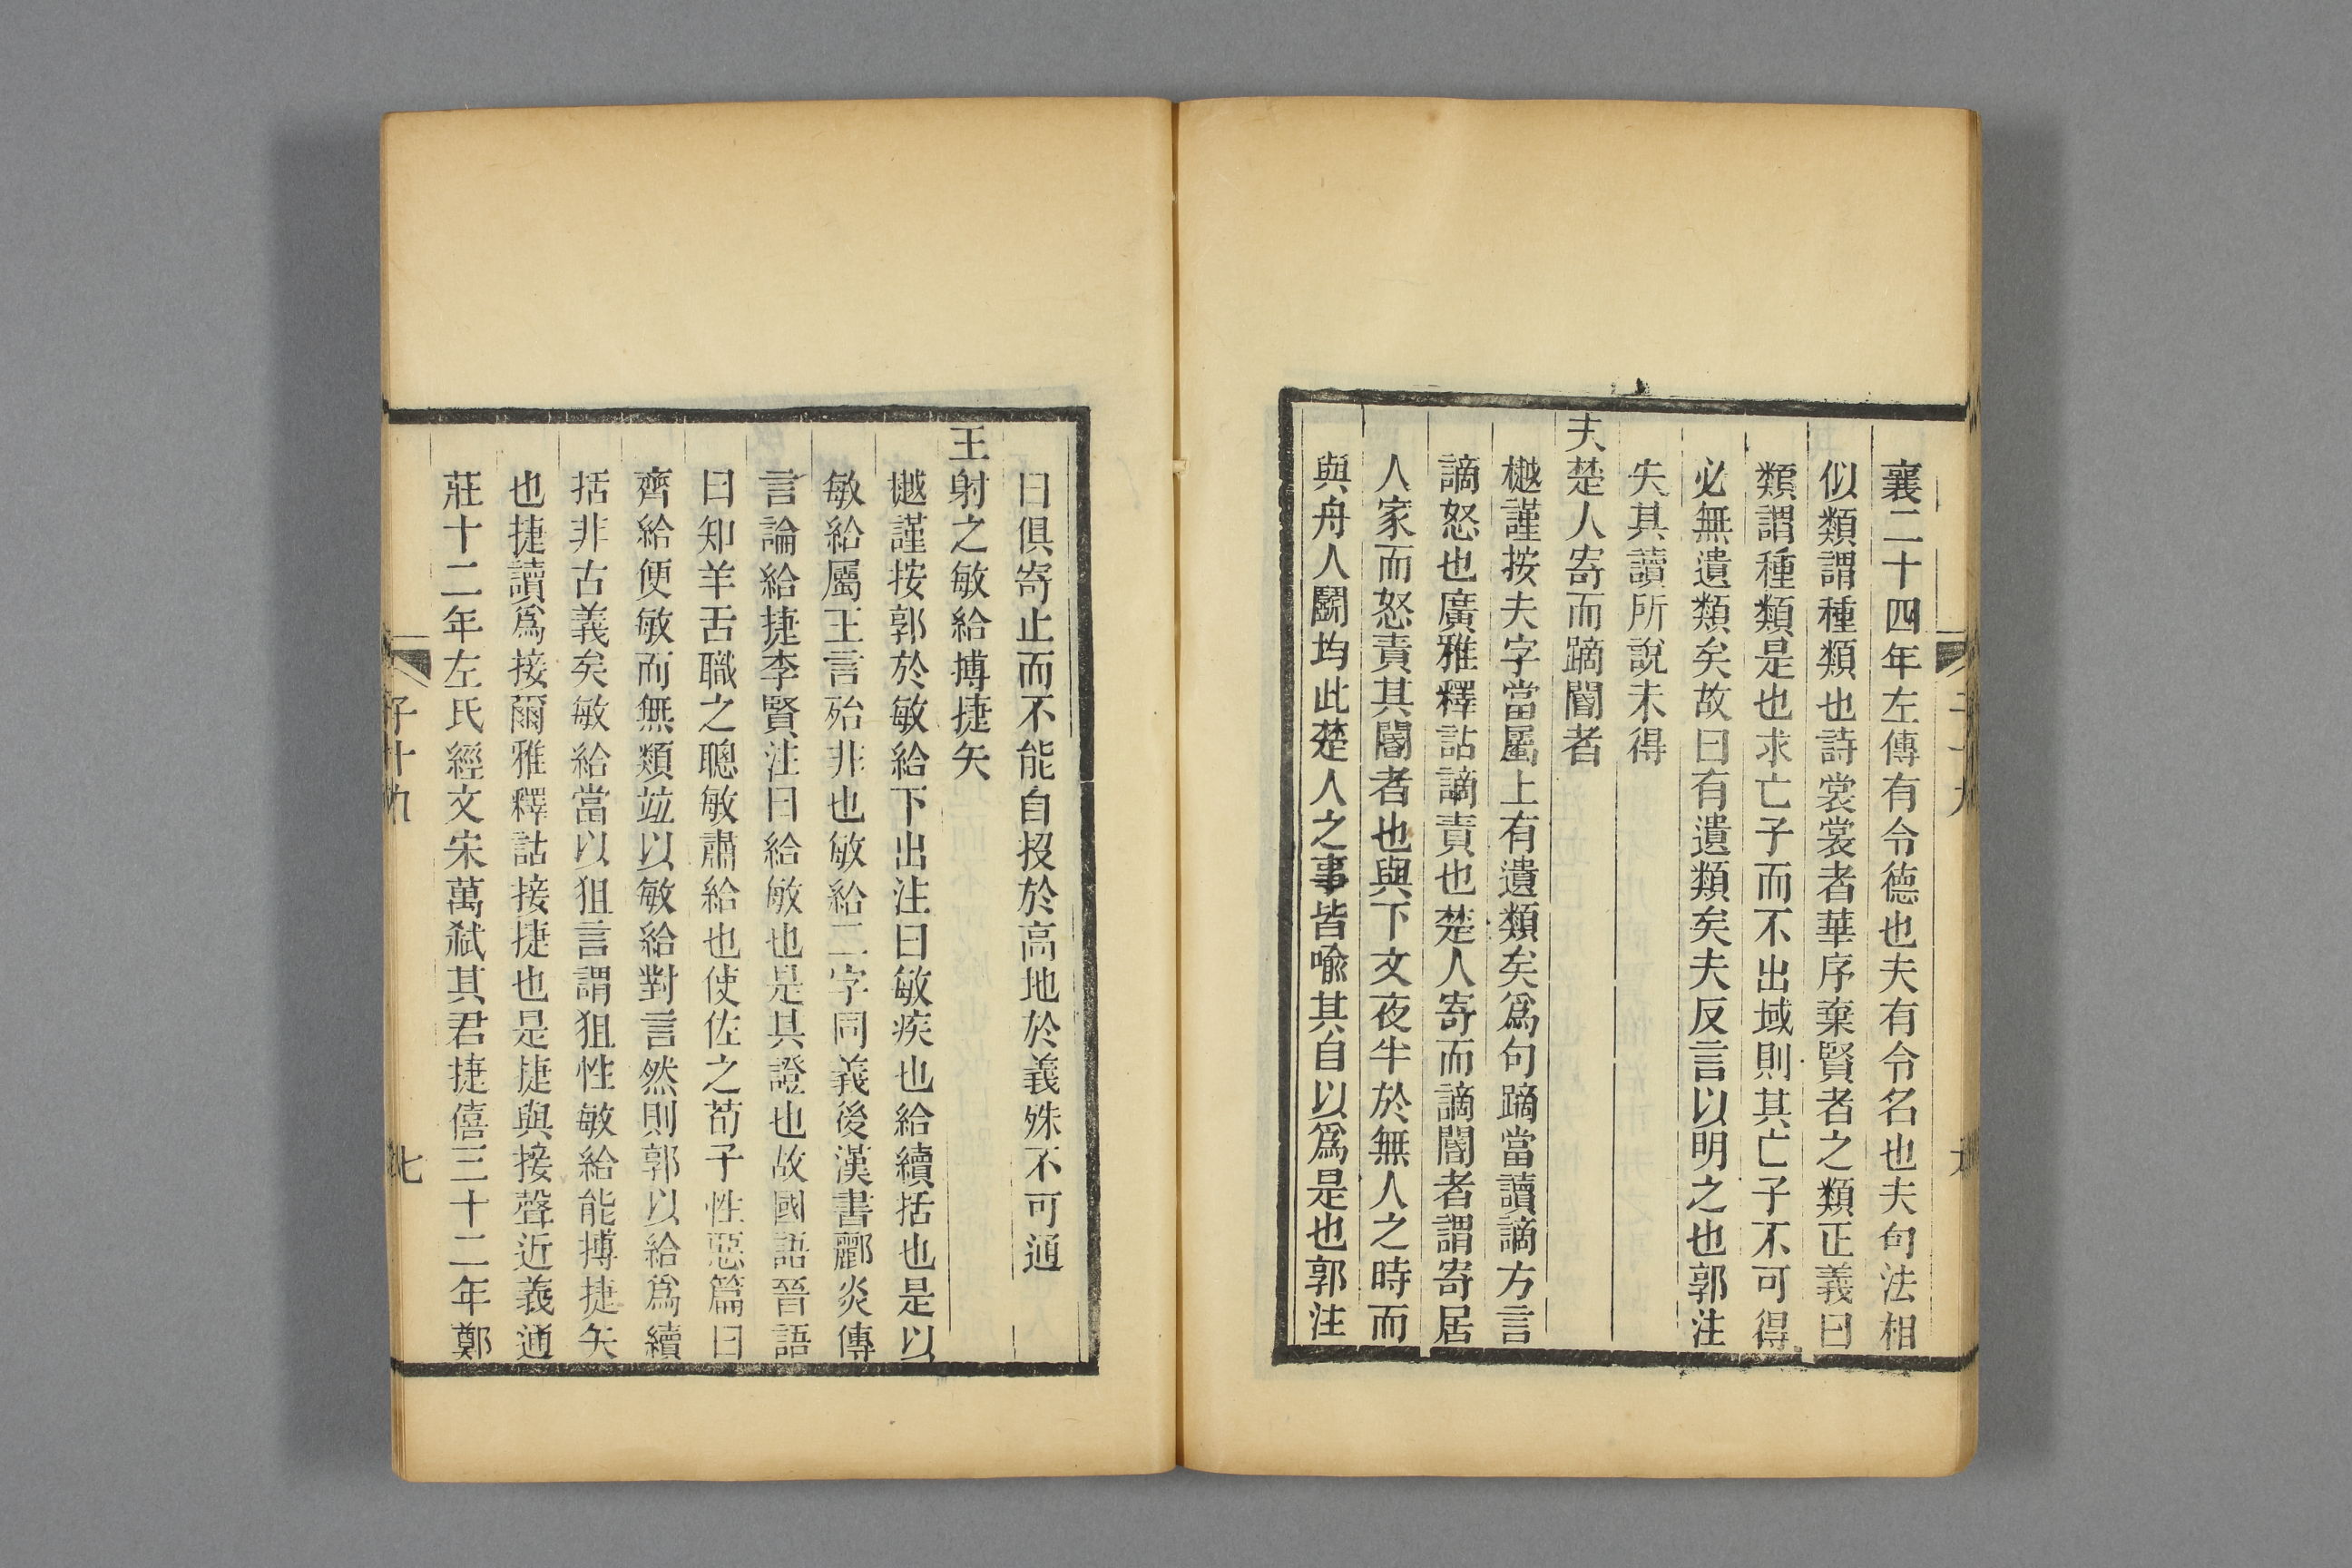 襄二十四年左傳有令德也夫有令名也夫句法相
似類謂種類也詩裳裳者華序棄賢者之類正義曰
類謂種類是也求亡子而不出域則其亡子不可得
必無遺類矣故曰有遺類矣夫反言以明之也郭注
失其讀所說未得
夫楚人寄而蹢閽者
樾謹按夫字當屬上有遺類矣爲句蹢當讀謫方言
謫怒也廣雅釋詁謫責也楚人寄而謫閽者謂寄居
人家而怒責其閽者也與下文夜半於無人之時而
與舟人鬭均此楚人之事皆喻其自以爲是也郭注
曰俱寄止而不能自投於高地於義殊不可通
王射之敏給搏捷矢
樾謹按郭於敏給下出注曰敏疾也給續括也是以
敏給屬王言殆非也敏給二字同義後漢書酈炎傳
言論給捷李賢注曰給敏也是其證也故國語晉語
曰知羊舌職之聰敏肅給也使佐之荀子性惡篇曰
齊給便敏而無類竝以敏給對言然則郭以給爲續
括非古義矣敏給當以狙言謂狙性敏給能搏捷矢
也捷讀爲接爾雅釋詁接捷也是捷與接聲近義通
莊十二年左氏經文宋萬弒其君捷僖三十二年鄭
子十九
七